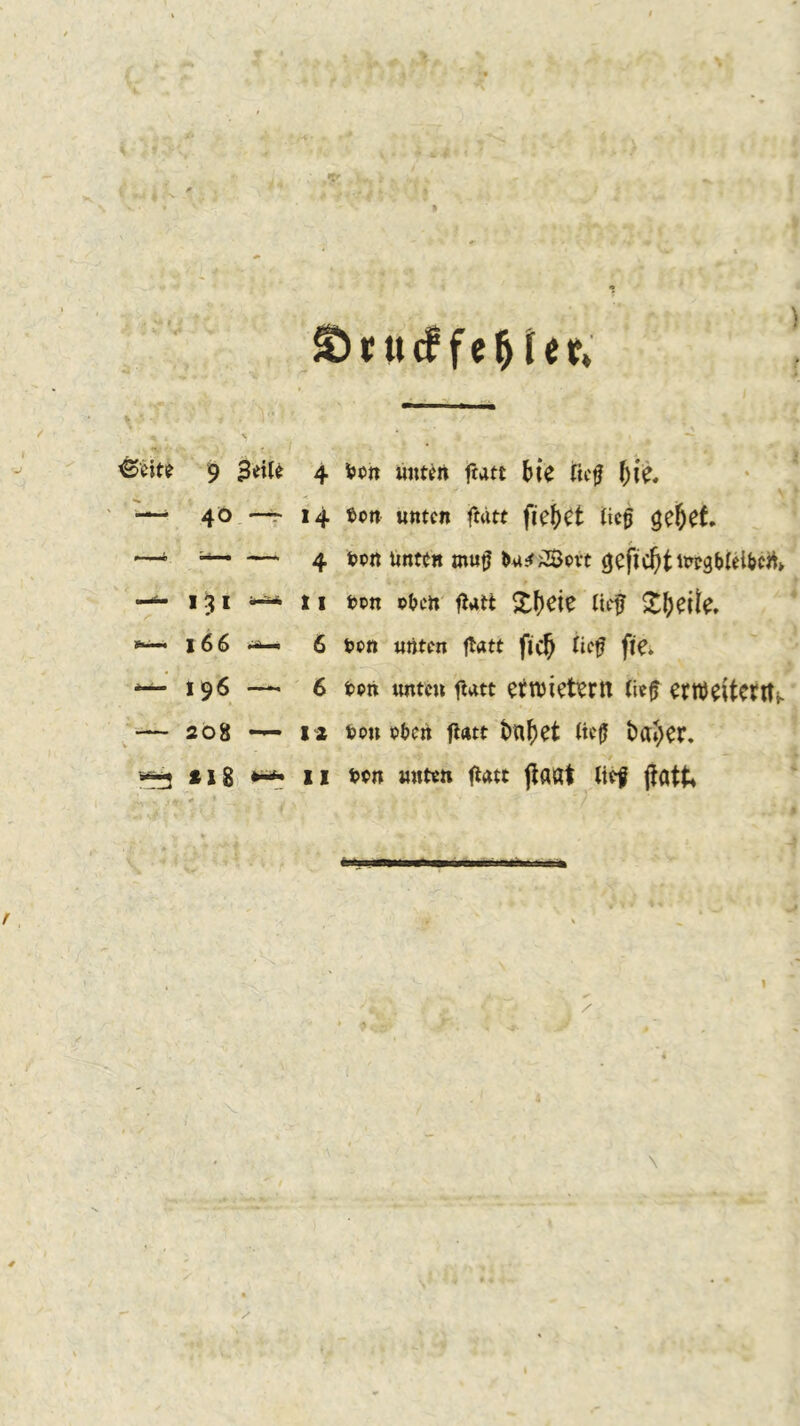 Druckfehler.
Seite 9 Zeile 4 von unten statt bie ließ hie.
— 40 — 14 von unten statt siehet ließ gehet.
— — — 4 von unten muß das Wort gesicht wegbleiben.
— 131 — 11 von oben statt Theie ließ Theile.
— 166 — 6 von unten statt sich ließ sie.
— 196 — 6 von unten statt erwietern ließ erweitern.
— 208 — 12 von oben statt dahet ließ daher.
— 218 — 11 von unten statt staat ließ statt.